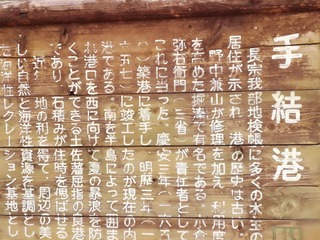 手結港
長宗我部地検帳に多くの水主の
居住が示され 港の歴史は古い
野中兼山が修理を加え 利用度
を高めた掘港で有名である 小倉
弥右衛門（三省）が責任者として
これに当った 慶安三年（一六五
）築港に着手し 明暦三年（一
五七）に竣工したのが現在の内
港である 南を半島によって囲ま
れ港口を西に向けて夏の暴浪を防
ぐことができる土佐屈指の良港
であり 石積みが往時を偲ばせる
近年 地の利を得て 周辺の美
しい自然と海洋性資源を基調とし
海洋性レクレーション基地とし